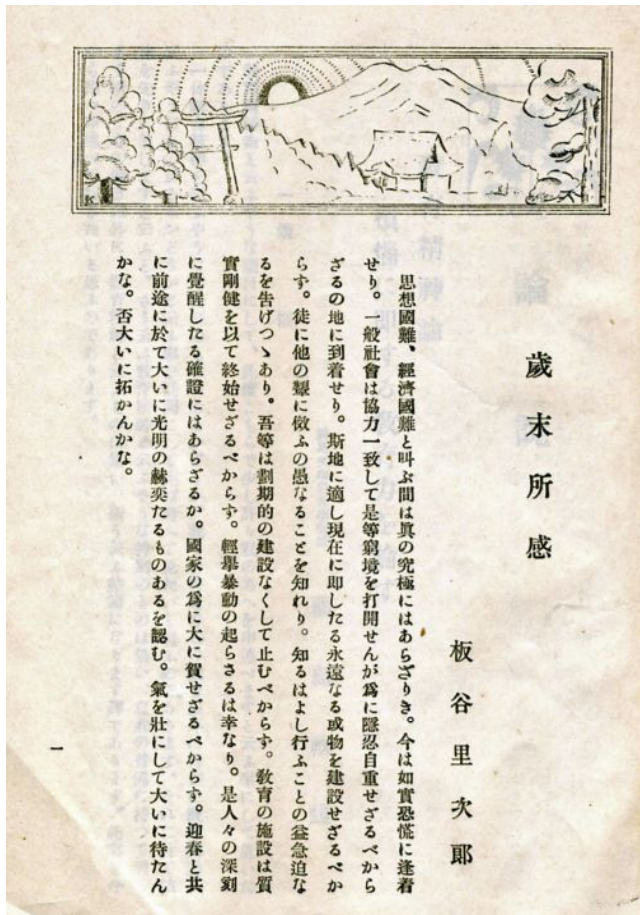 歲末所感
板谷里次郞
思想國難、經濟國難と叫ぶ間は眞の究極にはあらざりき。今は如實恐慌に逢着
せり。一般社會は協力一致して是等窮境を打開せんが爲に隱忍自重せざるべから
ざるの地に到着せり。斯地に適し現在に卽したる永遠なる或物を建設せざるべか
らず。徒に他の顰に傚ふの愚なることを知れり。知るはよし行ふことの益急迫な
るを告げつゝあり。吾等は劃期的の建設なくして止むべからず。敎育の施設は質
實剛健を以て終始せざるべからず。輕擧暴動の起らさるは幸なり。是人々の深刻
に覺醒したる確證にはあらざるか。國家の爲に大に賀せざるべからず。迎春と共
に前途に於て大いに光明の赫奕たるものあるを認む。氣を壯にして大いに待たん
かな。否大いに拓かんかな。
一